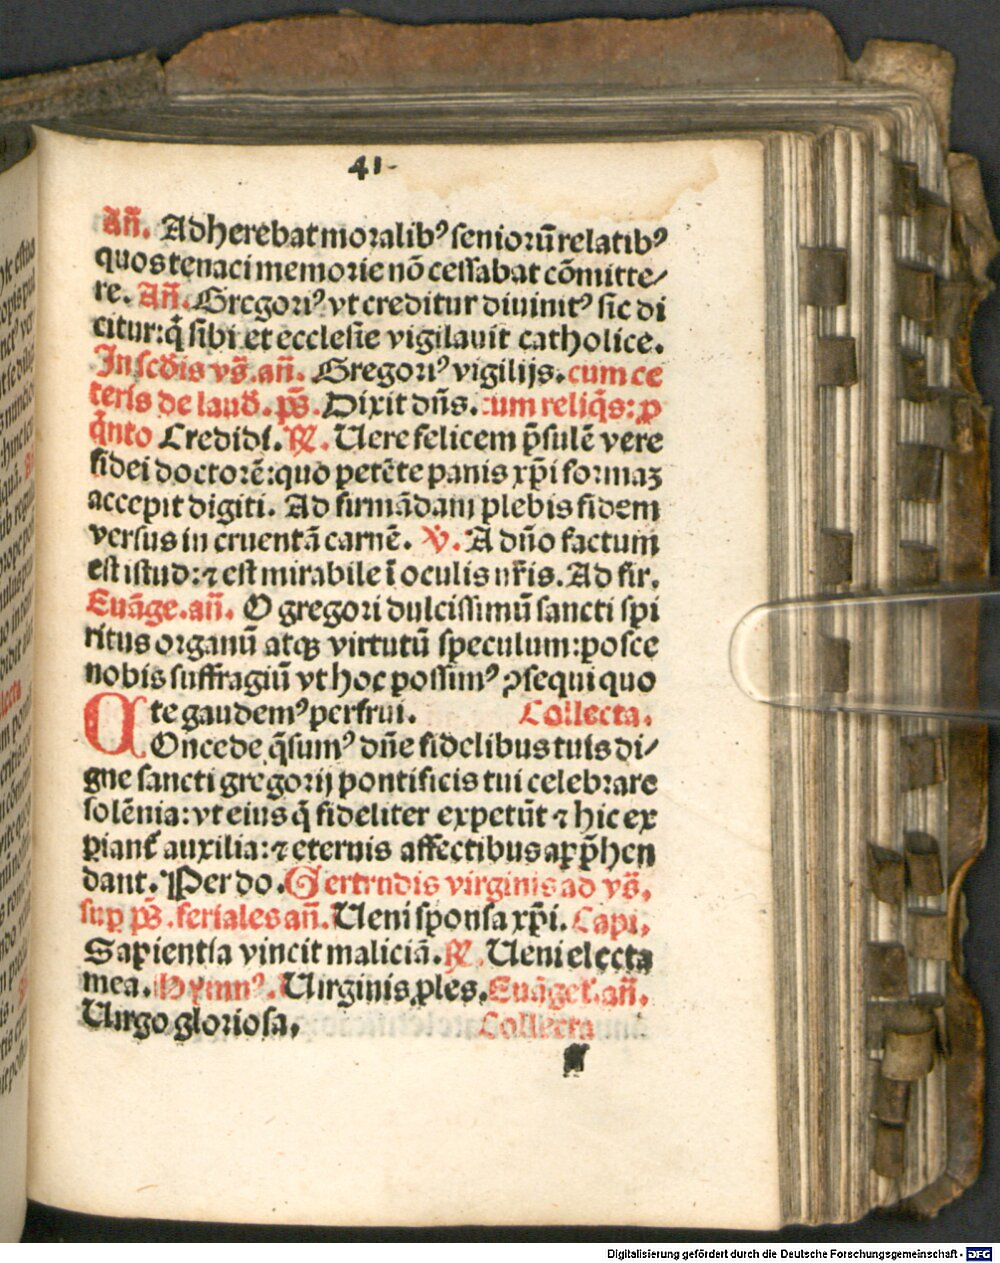 41-
Añ. Adherebat moralibꝰ senioꝝ relatibꝰ
quos tenaci memorie nō cessabat cōmitte/
re. Añ. Gregoriꝰ vt creditur diuinitꝰ sic di
citur: q̄ sibi et ecclesie vigilauit catholice.
In scd̄is vs̄. añ. Gregoriꝰ vigilijs. cum ce
teris de laud̄. ps̄. Dixit dn̄s. cum reliq̄s: ꝓ
q̄nto Credidi. ℟. Uere felicem p̄sulē vere
fidei doctorē: quo petēte panis xp̄i formaꝫ
accepit digiti. Ad firmādam plebis fidem
versus in cruentā carnē. ℣. A dn̄o factum
est istud: ⁊ est mirabile ī oculis nr̄is. Ad fir.
Euāge. añ. O gregori dulcissimū sancti spi
ritus organū atqꝫ virtutū speculum: posce
nobis suffragiū vt hoc possimꝰ ꝯsequi quo
te gaudemꝰ perfrui. Collecta.
COncede q̄sumꝰ dn̄e fidelibus tuis di/
gne sancti gregorij pontificis tui celebrare
solēnia: vt eius q̄ fideliter expetūt ⁊ hic ex
piant̄ auxilia: ⁊ eternis affectibus app̄hen
dant. Per do. Gertrudis virginis ad vs̄.
sup ps̄. feriales añ. Ueni sponsa xp̄i. Capi.
Sapientia vincit maliciā. ℟. Ueni electa
mea. Hymnꝰ. Uirginis ꝓles. Euāgel. añ.
Uirgo gloriosa. Collecta
Digitalisierung gefördert durch die Deutsche Forschungsgemeinschaft - DFG